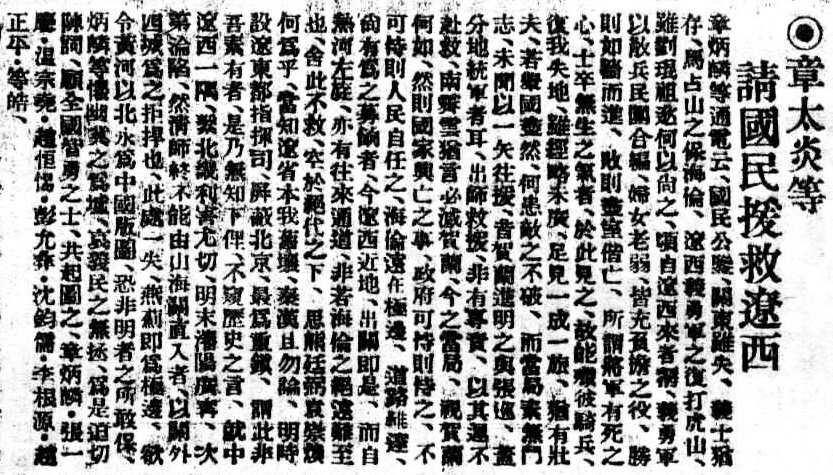 章太炎等
請國民援救遼西
章炳麟等通電云、國民公鑒、關東雖失、義士猶
存、馬占山之保海倫、遼西義勇軍之復打虎山、
雖劉琨祖逖何以尚之、頃自遼西來者謂、義勇軍
以散兵民團合編、婦女老弱、皆充負擔之役、勝
則如牆而進、敗則盡室偕亡、所謂將軍有死之
心、士卒無生之氣者、於此見之、故能殲彼騎兵、
復我失地、雖經略未廣、足見一成一旅、猶有壯
夫、若舉國盡然、何患敵之不破、而當局素無鬥
志、未聞以一矢往援、昔賀蘭進明之與張巡、蓋
分地統軍者耳、出師救援、非有專責、以其遲不
赴救、南霽雲猶言必滅賀蘭、今之當局、視賀蘭
何如、然則國家興亡之事、政府可恃則恃之、不
可恃則人民自任之、海倫遠在極邊、道路維遼、
尚有為之募餉者、今遼西近地、出關即是、而自
熱河左庭、亦有往來通道、非若海倫之絕遠難至
也、舍此不救、牢於絕代之下、思熊廷弼袁崇煥
何為乎、當知遼省本我舊壤、秦漢且勿論、明時
設遼東都指揮司、屏蔽北京、最為重鎮、謂此非
吾素有者、是乃無知下俚、不窺歷史之言、就中
遼西一隅、繫北纔利害尤切、明末瀋陽廣寧、次
第淪陷、然清師終不能由山海關直入者、以關外
四城為之拒捍也、此處一失、燕薊即為極邊、欲
令黃河以北永為中國版圖、恐非明者之所敢保、
炳麟等懷幽冀之為墟、哀義民之無拯、為是迫切
陳詞、願全國智勇之士、共起圖之、章炳麟・張一
麐・溫宗堯・趙恒惕・彭允彝・沈鈞儒・李根源・趙
正平・等皓、